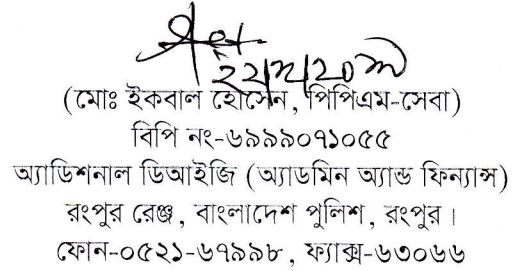 (মোঃ ইকবাল হোসেন, পিপিএম-সেবা)
বিপি নং-৬৯৯৯০৭১০৫৫
অ্যাডিশনাল ডিআইজি (অ্যাডমিন অ্যান্ড ফিন্যান্স)
রংপুর রেঞ্জ, বাংলাদেশ পুলিশ, রংপুর।
ফোন-০৫২১-৬৭৯৯৮, ফ্যাক্স-৬৩০৬৬